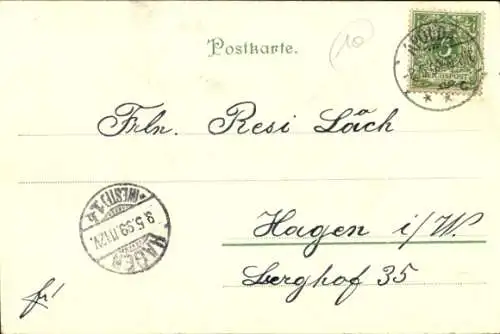 Postkarte.
(10)
APOLDA
5
REICHSPOST
Frln. Resi Läch
HAGEN
(WESTF) 1.
9.5.99.11-12V.
Hagen i/W.
Berghof 35
fr!